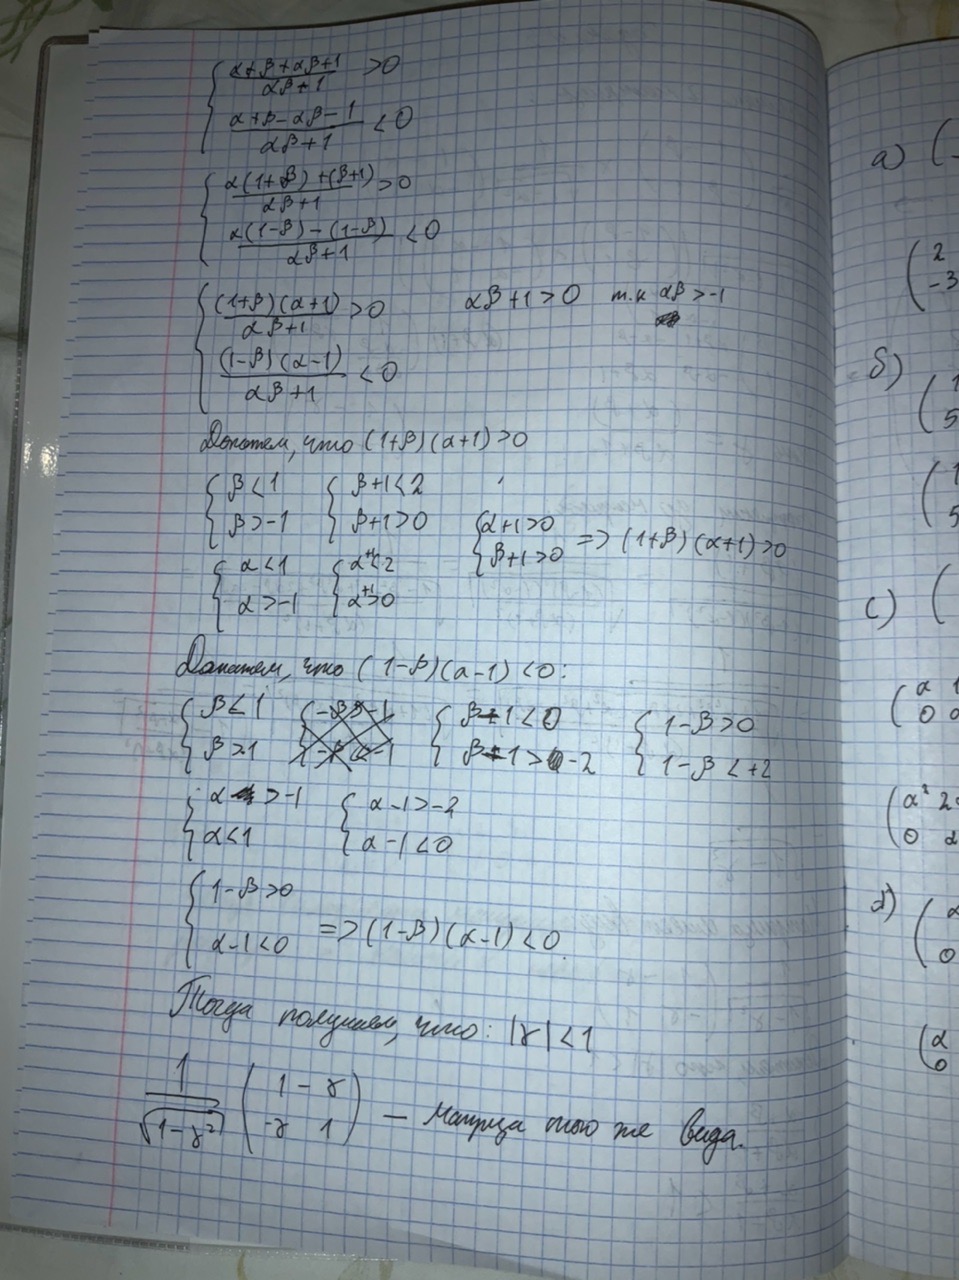 { (α+β+αβ+1)/(αβ+1) >0
(α+β-αβ-1)/(αβ+1) <0
{ (α(1+β)+(β+1))/(αβ+1) >0
(α(1-β)-(1-β))/(αβ+1) <0
{ ((1+β)(α+1))/(αβ+1) >0 αβ+1>0 т.к αβ>-1
((1-β)(α-1))/(αβ+1) <0
Докажем, что (1+β)(α+1)>0
{ β<1 { β+1<2
β>-1 β+1>0 { α+1>0
β+1>0 => (1+β)(α+1)>0
{ α<1 { α+1<2
α>-1 α+1>0
Докажем, что (1-β)(α-1)<0:
{ β<1 { β-1<0 { 1-β>0
β>1 β-1>-2 1-β<+2
{ α>-1 { α-1>-2
α<1 α-1<0
{ 1-β>0
α-1<0 => (1-β)(α-1)<0
Тогда получаем, что: |γ|<1
1/√(1-γ²) ( 1 -γ
-γ 1 ) — матрица того же вида.
а) (
( 2
-3
б) ( 1
5
( 1
5
с) (
( α 1
0 α
( α² 2
0 α
д) ( α
0
( α
0